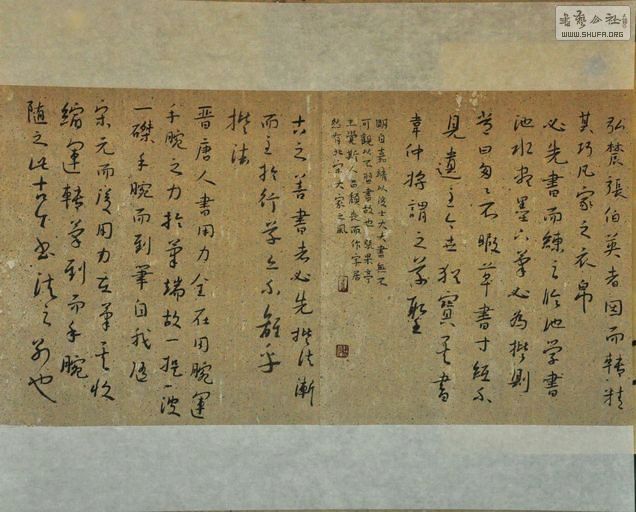 弘農張伯英者因而轉精
其巧凡家之衣帛
必先書而練之臨池學書
池水盡墨下筆必為楷則
常曰匆匆不暇草書寸紙不
見遺至今世猶寶其書
韋仲將謂之草聖
明自嘉靖以後士大夫書無不
可觀以不習書故也張果亭
王覺斯人品頹喪而作字居
然有北宋大家之風
古之善書者必先楷法漸
而至於行草亦不離乎
楷法
晉唐人書用力全在用腕運
手腕之力於筆端故一捉一波
一磔手腕而到筆自我隨
宋元而後用力在筆其收
縮運轉筆到而手腕
隨之此古今書法之別也
書藝公社
WWW.SHUFA.ORG